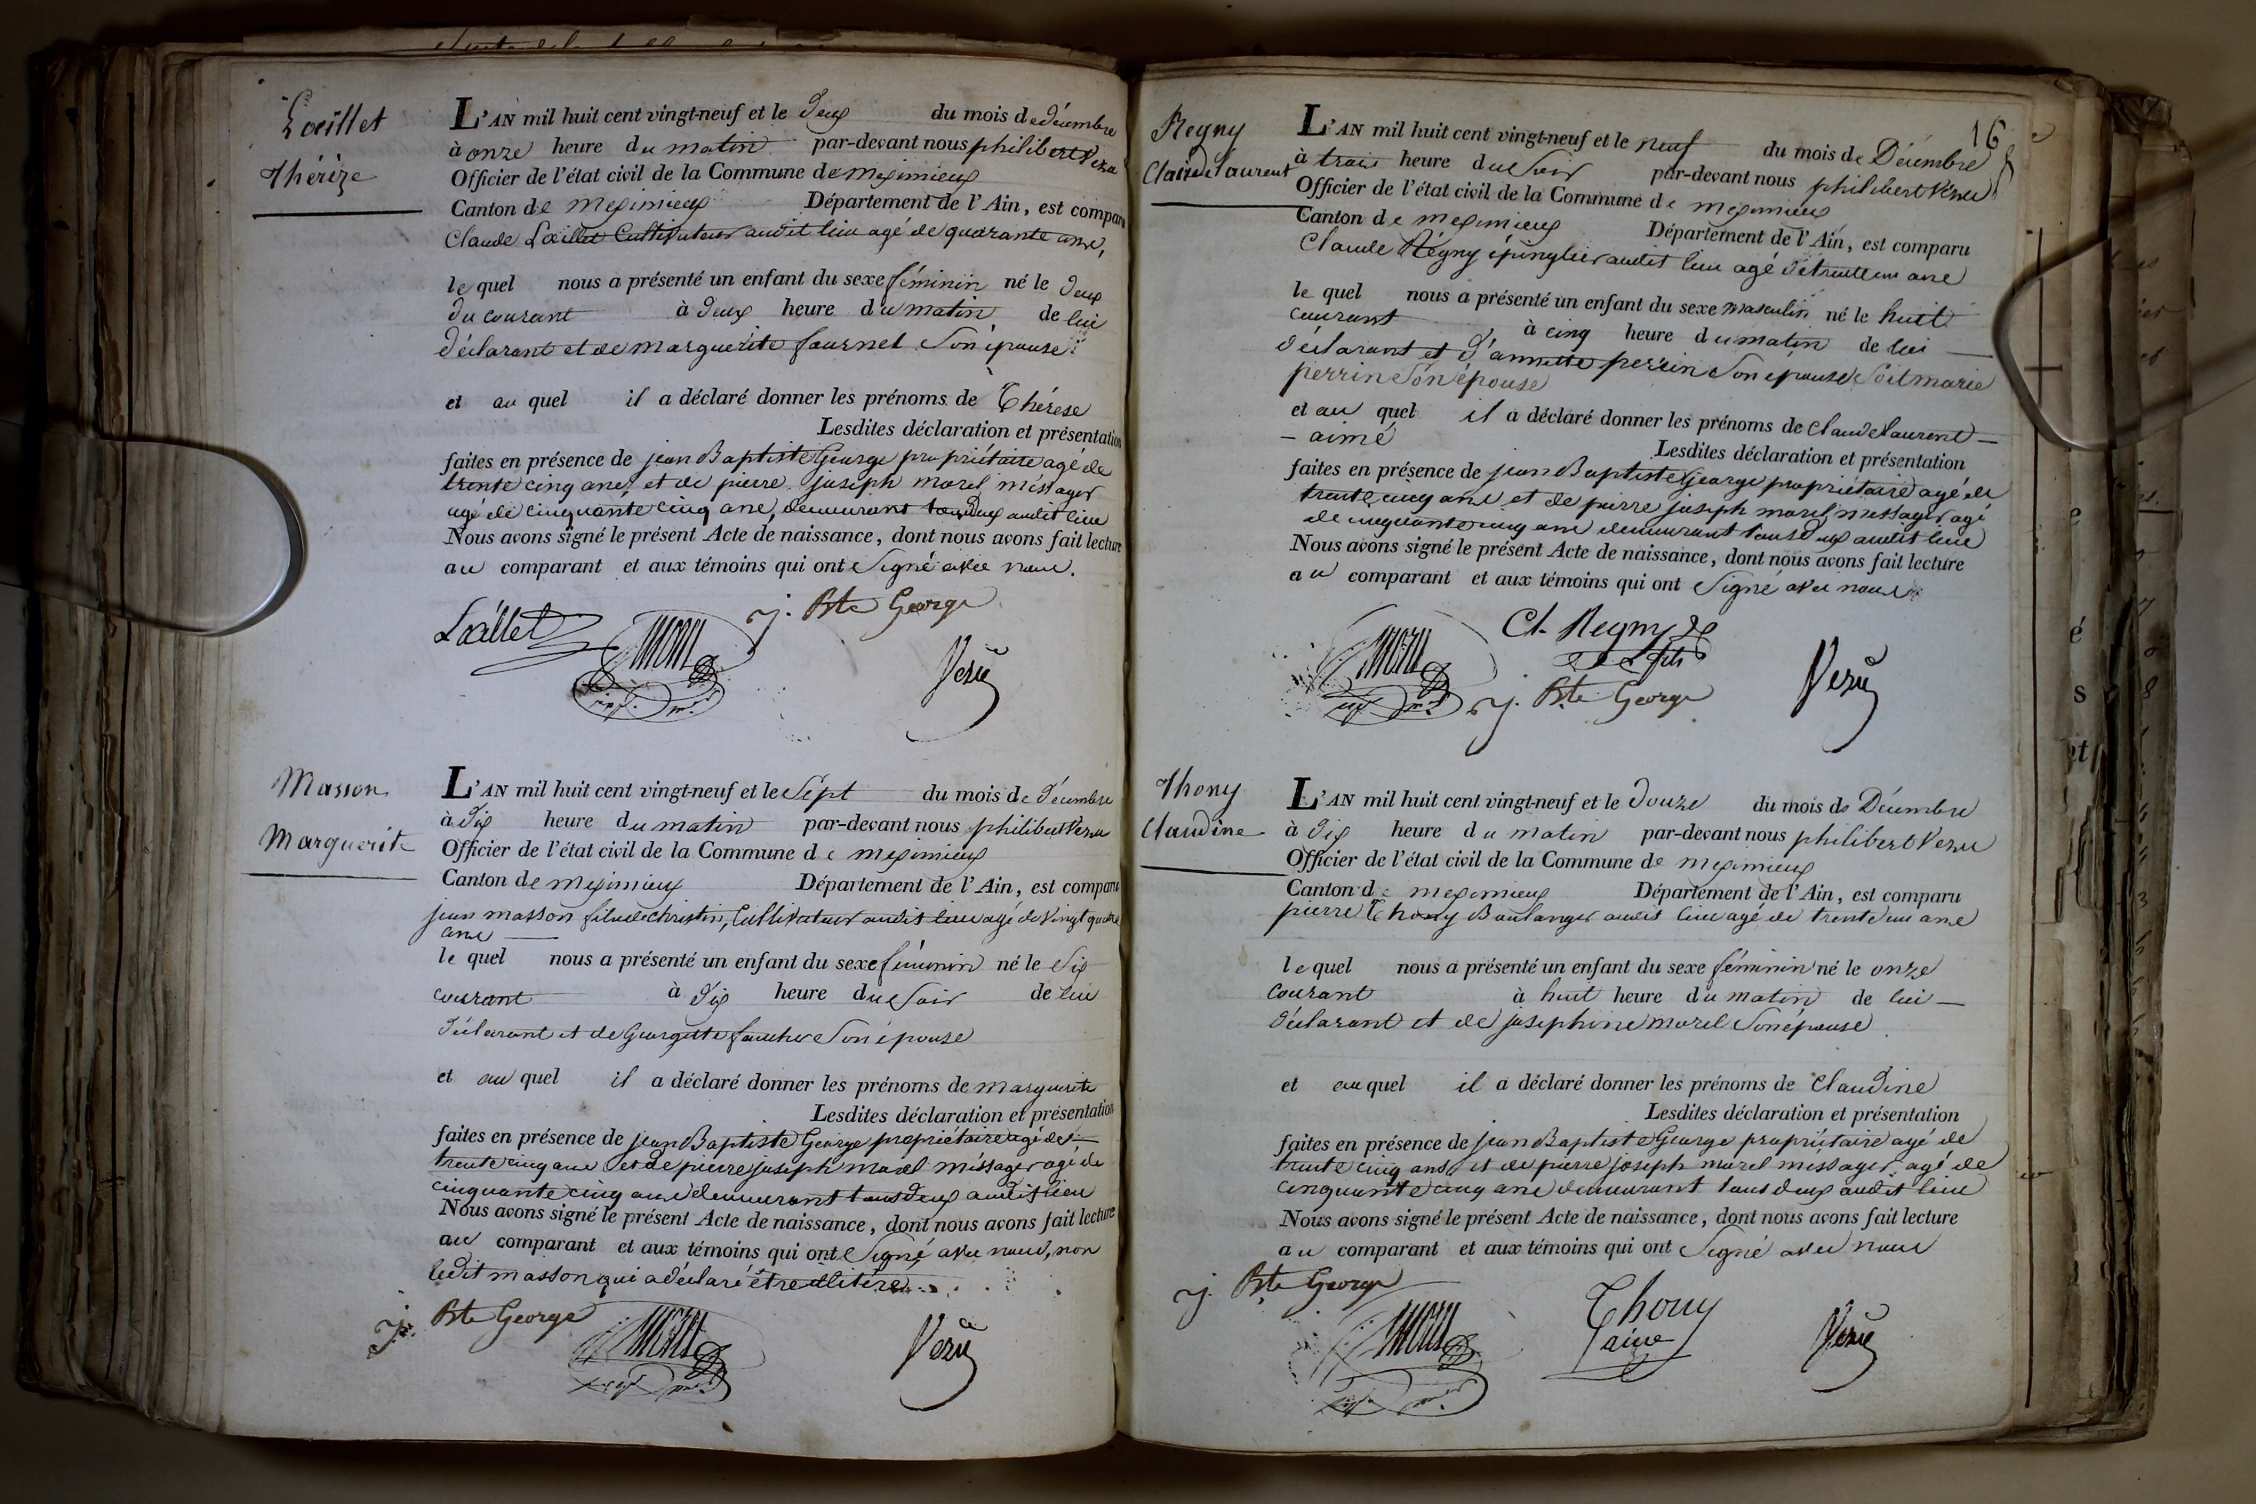 Loeillet
Thérèze
L'AN mil huit cent vingt-neuf et le deux du mois de décembre
à onze heure du matin par-devant nous philibert Vezu
Officier de l'état civil de la Commune de meximieux
Canton de meximieux Département de l'Ain, est comparu
Claude Loeillet Cultivateur audit lieu agé de quarante ans,
le quel nous a présenté un enfant du sexe féminin né le deux
du courant à deux heure du matin de lui
déclarant et de marguerite fournel Son épouse
et au quel il a déclaré donner les prénoms de Thérèse
Lesdites déclaration et présentation
faites en présence de jean Baptiste George propriétaire agé de
trente cinq ans, et de pierre joseph morel méssager
agé de cinquante cinq ans, demeurant tous deux audit lieu
Nous avons signé le présent Acte de naissance, dont nous avons fait lecture
au comparant et aux témoins qui ont Signé avec nous.
Loeillet
j. Bte George
Vezu
Masson
Marguerite
L'AN mil huit cent vingt-neuf et le Sept du mois de décembre
à dix heure du matin par-devant nous philibert Vezu
Officier de l'état civil de la Commune de meximieux
Canton de meximieux Département de l'Ain, est comparu
jean masson fils de christin, Cultivateur audit lieu agé de vingt quatre
ans
le quel nous a présenté un enfant du sexe féminin né le Six
courant à dix heure du Soir de lui
déclarant et de Georgette faucher Son épouse
et au quel il a déclaré donner les prénoms de marguerite
Lesdites déclaration et présentation
faites en présence de jean Baptiste George propriétaire agé de
trente cinq ans et de pierre joseph morel méssager agé de
cinquante cinq ans demeurant tous deux audit lieu
Nous avons signé le présent Acte de naissance, dont nous avons fait lecture
au comparant et aux témoins qui ont Signé avec nous, non
ledit masson qui a déclaré être illitéré
j. Bte George
Vezu
16
Regny
Claude Laurent
L'AN mil huit cent vingt-neuf et le neuf du mois de Décembre
à trois heure du Soir par-devant nous philibert Vezu
Officier de l'état civil de la Commune de meximieux
Canton de meximieux Département de l'Ain, est comparu
Claude Régny épinglier audit lieu agé de trente un ans
le quel nous a présenté un enfant du sexe masculin né le huit
courant à cinq heure du matin de lui
déclarant et d'annette perrin Son épouse Soit marie
perrin Son épouse
et au quel il a déclaré donner les prénoms de claude laurent
- aimé
Lesdites déclaration et présentation
faites en présence de jean Baptiste George propriétaire agé de
trente cinq ans et de pierre joseph morel messager agé
de cinquante cinq ans demeurant tous deux audit lieu
Nous avons signé le présent Acte de naissance, dont nous avons fait lecture
au comparant et aux témoins qui ont Signé avec nous
Cl. Regny
fils
j. Bte George
Vezu
Thony
Claudine
L'AN mil huit cent vingt-neuf et le douze du mois de Décembre
à dix heure du matin par-devant nous philibert Vezu
Officier de l'état civil de la Commune de meximieux
Canton de meximieux Département de l'Ain, est comparu
pierre Thony Boulanger audit lieu agé de trente un ans
le quel nous a présenté un enfant du sexe féminin né le onze
courant à huit heure du matin de lui
déclarant et de josephine morel Son épouse
et au quel il a déclaré donner les prénoms de Claudine
Lesdites déclaration et présentation
faites en présence de jean Baptiste George propriétaire agé de
trente cinq ans, et de pierre joseph morel méssager, agé de
cinquante cinq ans demeurant tous deux audit lieu
Nous avons signé le présent Acte de naissance, dont nous avons fait lecture
au comparant et aux témoins qui ont Signé avec nous
j. Bte George
Thony
aine
Vezu